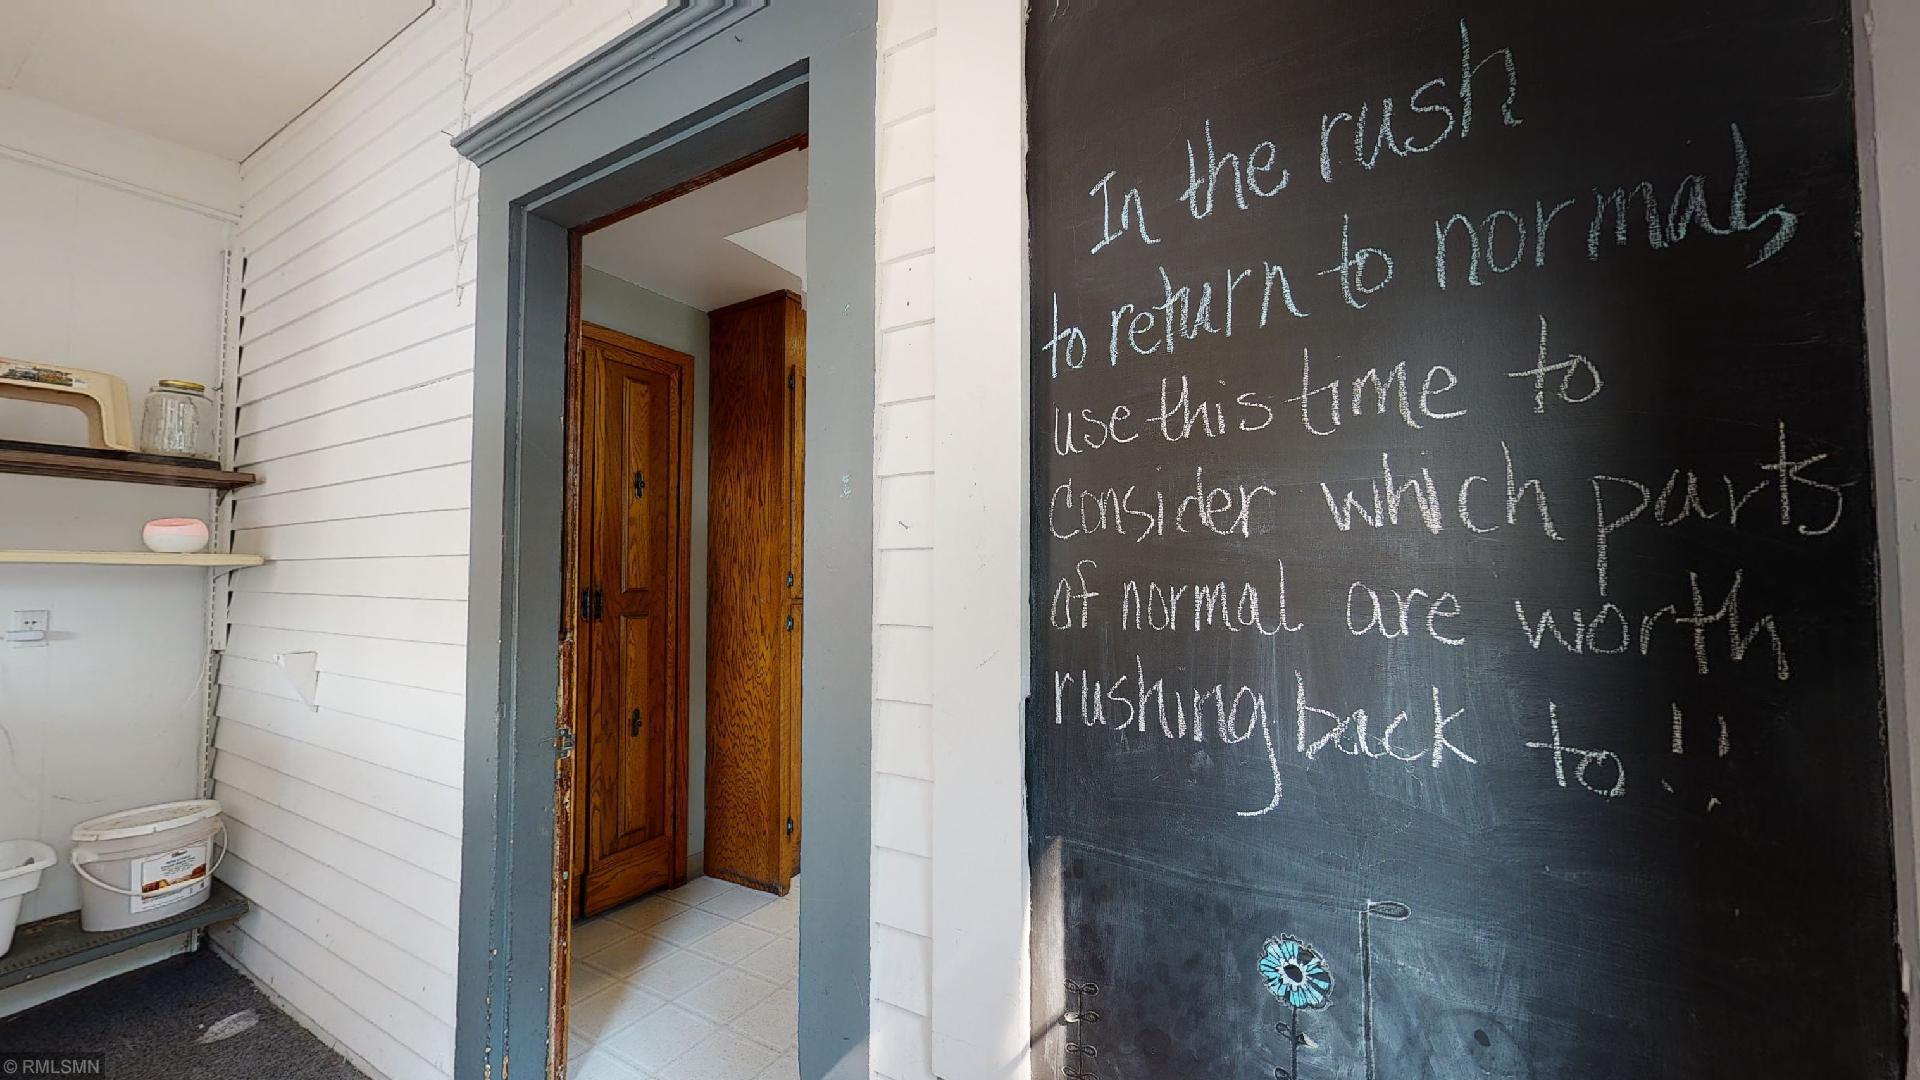 In the rush
to return to normal,
use this time to
consider which parts
of normal are worth
rushing back to!!
© RMLSMN